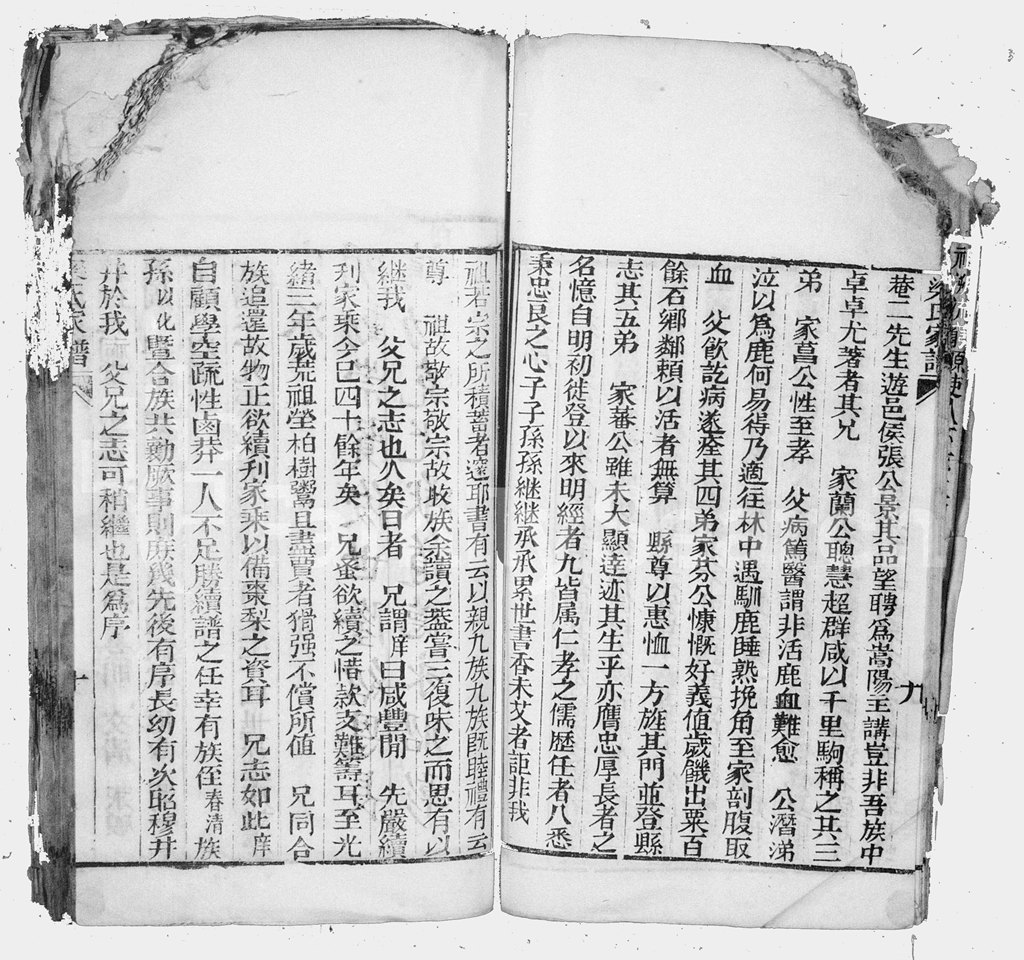 梁氏家譜
九
菴二先生遊邑侯張公景其品望聘爲嵩陽主講豈非吾族中
卓卓尤著者其兄　家蘭公聰慧超群咸以千里駒稱之其三
弟　家菖公性至孝　父病篤醫謂非活鹿血難愈　公潛涕
泣以爲鹿何易得乃適往林中遇馴鹿睡熟挽角至家剖腹取
血　父飲訖病遂痊其四弟家芬公慷慨好義值歲饑出粟百
餘石鄉鄰賴以活者無算　縣尊以惠恤一方旌其門並登縣
志其五弟　家蕃公雖未大顯達迹其生乎亦膺忠厚長者之
名憶自明初徙登以來明經者九皆属仁孝之儒歷任者八悉
秉忠良之心子子孫孫繼繼承承累世書香未艾者詎非我
祖若宗之所積蓄者邃耶書有云以親九族九族既睦禮有云
尊　祖故敬宗敬宗故收族余讀之盍嘗三復味之而思有以
継我　父兄之志也久矣日者　兄謂庠曰咸豐間　先嚴續
刊家乘今已四十餘年矣　兄蚤欲續之惜款支難籌耳至光
緒三年歲荒祖塋柏樹鬻且盡賈者猾强不償所值　兄同合
族追還故物正欲續刊家乘以備棗梨之資耳　兄志如此庠
自顧學空疏性鹵莽一人不足勝續譜之任幸有族侄春清族
孫以化暨合族共勷厥事則庶幾先後有序長幼有次昭穆井
井於我　父兄之志可稍繼也是爲序
氏家譜
十